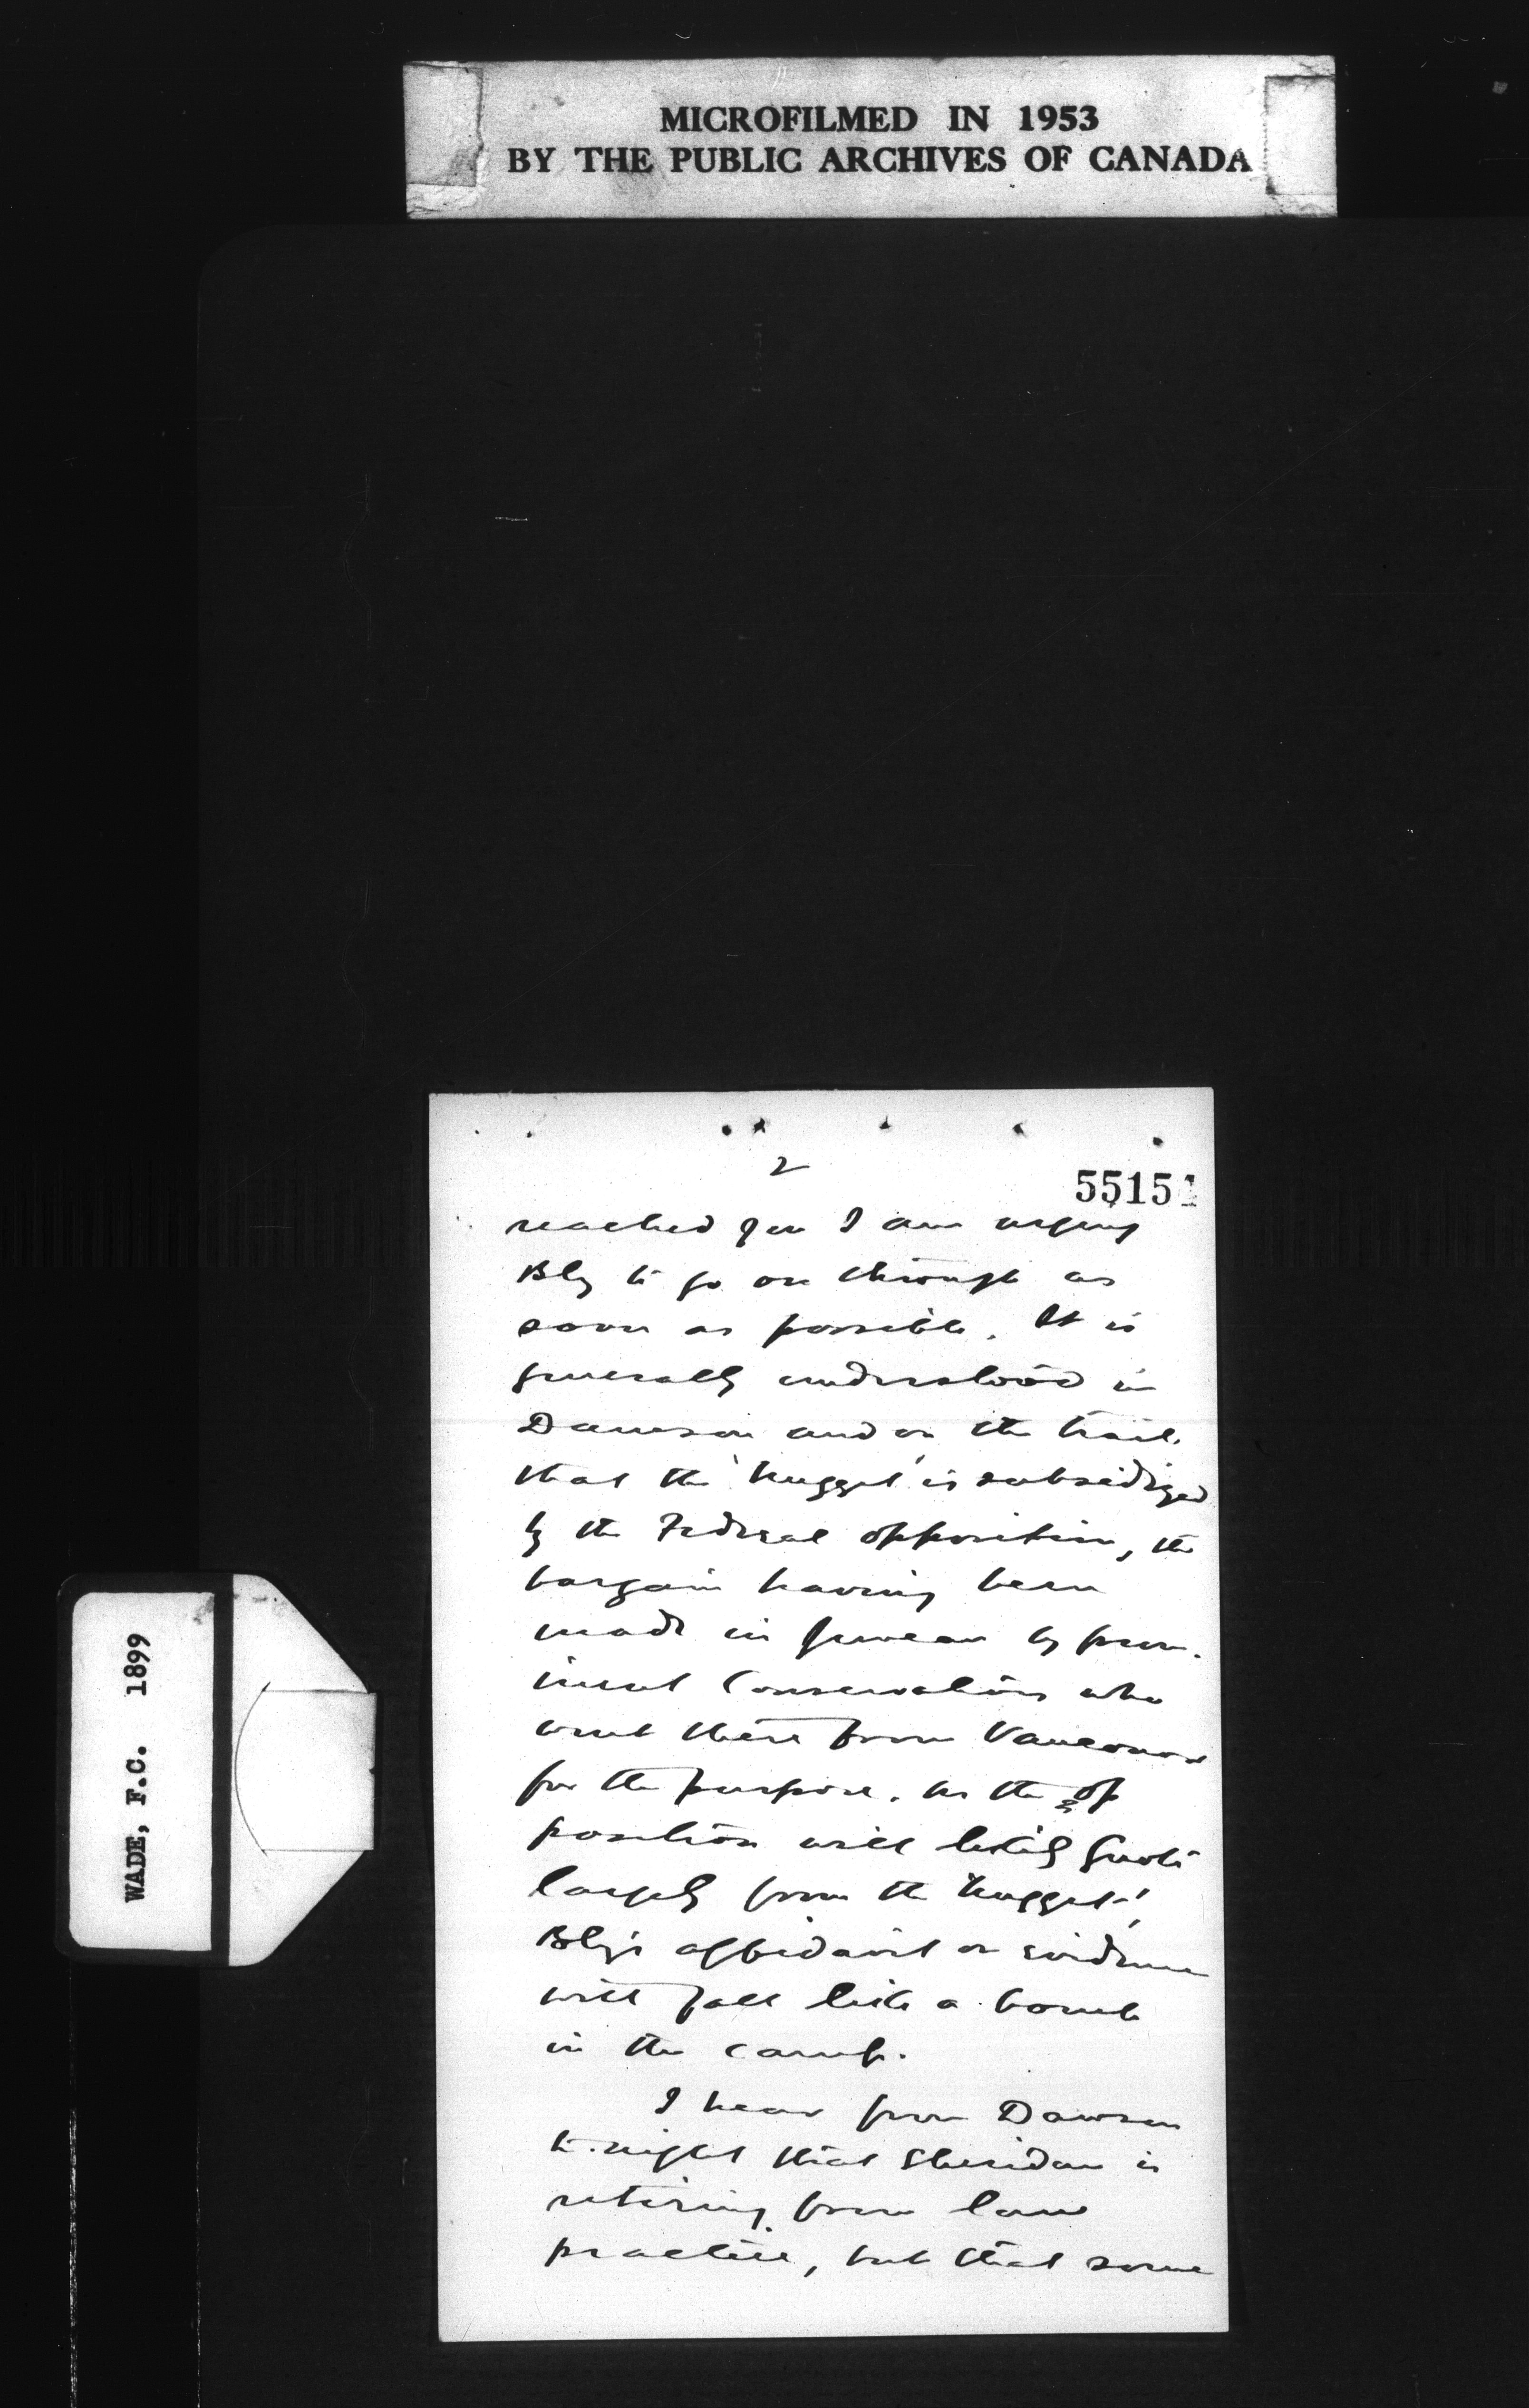 MICROFILMED IN 1953
BY THE PUBLIC ARCHIVES OF CANADA
WADE, F.C. 1899
2
55151
reached you I am urging
Bly to go on through as
soon as possible. It is
generally understood in
Dawson and on the trail,
that the 'Nugget' is subsidized
by the Federal opposition, the
bargain having been
made in Juneau by prom-
inent Conservatives who
went there from Vancouver
for the purpose. As the op
position will quote
largely from the 'Nugget',
Bly's affidavit or evidence
will fall like a bomb
in the camp.
I hear from Dawson
to-night that Sheridan is
retiring from law
practice, but that some